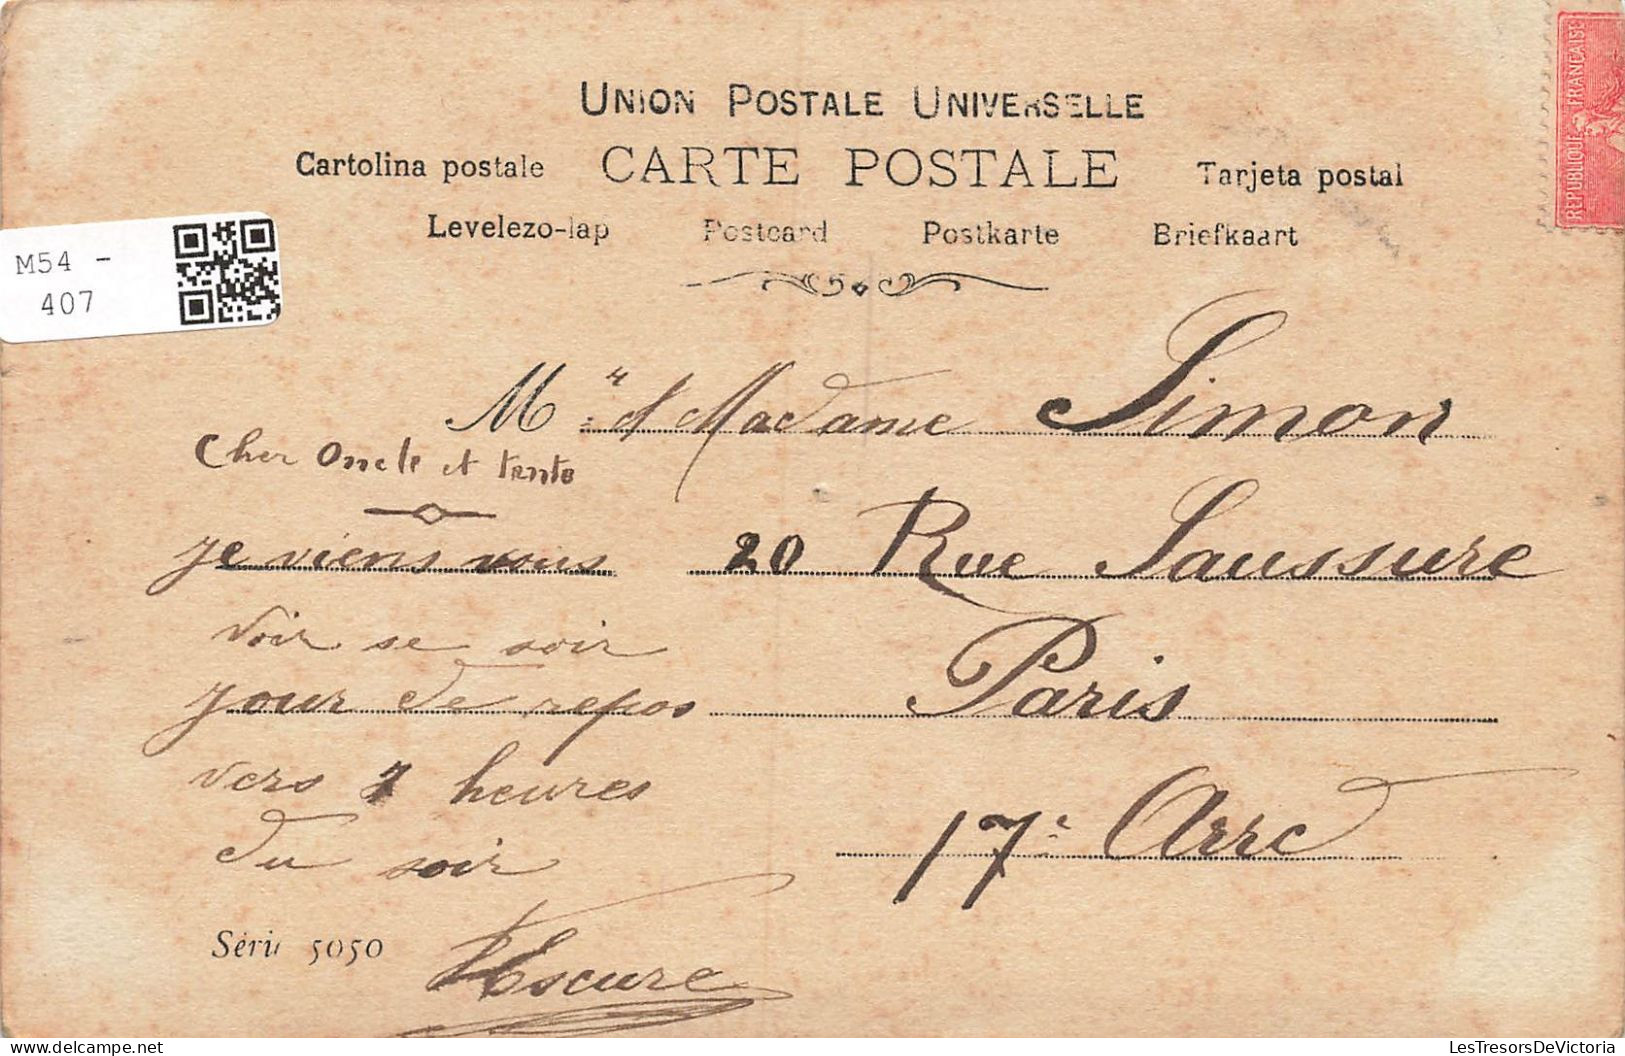 UNION POSTALE UNIVERSELLE
Cartolina postale CARTE POSTALE Tarjeta postal
Levelezo-lap Postcard Postkarte Briefkaart
REPUBLIQUE FRANÇAISE
M54 -
407
Mr et Madame Simon
20 Rue Saussure
Paris
17e Arrc
Cher Oncle et tente
je viens vous
voir se soir
jour de repos
vers 7 heures
du soir
Série 5050
LesTresorsDeVictoria